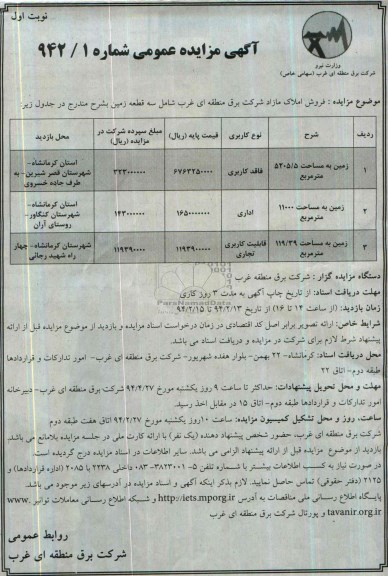 نوبت اول
وزارت نیرو
شرکت برق منطقه ای غرب (سهامی خاص)
آگهی مزایده عمومی شماره ۹۴۲/۱
موضوع مزایده : فروش املاک مازاد شرکت برق منطقه ای غرب شامل سه قطعه زمین بشرح مندرج در جدول زیر
ردیف شرح نوع کاربری قیمت پایه (ریال) مبلغ سپرده شرکت در مزایده (ریال) محل بازدید
۱ زمین به مساحت ۵۲۰۵/۵ مترمربع فاقد کاربری ۶۷۶۳۲۵۰۰۰۰ ۳۳۳۰۰۰۰۰۰ استان کرمانشاه- شهرستان قصر شیرین - به طرف جاده خسروی
۲ زمین به مساحت ۱۱۰۰۰ مترمربع اداری ۱۶۵۰۰۰۰۰۰۰ ۱۴۳۰۰۰۰۰۰ استان کرمانشاه- شهرستان کنگاور- روستای آران
۳ زمین به مساحت ۱۱۹/۳۹ مترمربع قابلیت کاربری تجاری ۱۱۹۳۹۰۰۰۰۰ ۱۱۹۳۹۰۰۰۰ شهرستان کرمانشاه- چهار راه شهید رجائی
دستگاه مزایده گزار : شرکت برق منطقه غرب
مهلت دریافت اسناد: از تاریخ چاپ آگهی به مدت ۳ روز کاری
زمان بازدید: (از ساعت ۱۴ تا ۱۶) از تاریخ ۹۴/۲/۱۳ تا ۹۴/۲/۱۵
شرایط خاص: ارائه تصویر برابر اصل کد اقتصادی در زمان درخواست اسناد مزایده و بازدید از موضوع مزایده قبل از ارائه
پیشنهاد شرط لازم برای شرکت در مزایده و دریافت اسناد می باشد.
محل دریافت اسناد: کرمانشاه- ۲۲ بهمن- بلوار هفده شهریور- شرکت برق منطقه ای غرب- امور تدارکات و قراردادها
طبقه دوم- اتاق ۲۲
مهلت و محل تحویل پیشنهادات: حداکثر تا ساعت ۹ روز یکشنبه مورخ ۹۴/۲/۲۷ شرکت برق منطقه ای غرب- دبیرخانه
امور تدارکات و قراردادها طبقه دوم- اتاق ۱۵ در مقابل اخذ رسید.
ساعت، روز و محل تشکیل کمیسیون مزایده: ساعت ۱۰ روز یکشنبه مورخ ۹۴/۲/۲۷ اتاق هفت طبقه دوم
شرکت برق منطقه ای غرب، حضور شخص پیشنهاد دهنده (یک نفر) با ارائه کارت ملی در جلسه مزایده بلامانع می باشد.
بازدید از موضوع مزایده قبل از ارائه پیشنهاد الزامی می باشد. سایر اطلاعات در اسناد مزایده درج گردیده است.
در صورت نیاز به کسب اطلاعات بیشتر با شماره تلفن ۵- ۳۸۲۳۰۰۱- ۰۸۳ داخلی ۲۲۳۸ یا ۲۰۸۵ (اداره قراردادها) و
۲۱۲۵ (دفتر حقوقی) تماس حاصل نمایید. لازم بذکر اینکه آگهی و اسناد مزایده در آدرسهای زیر موجود می باشد.
پایگاه اطلاع رسانی ملی مناقصات به آدرس http://iets.mporg.ir و شبکه اطلاع رسانی معاملات توانیر www.
tavanir.org.ir و پورتال شرکت برق منطقه ای غرب
روابط عمومی
شرکت برق منطقه ای غرب